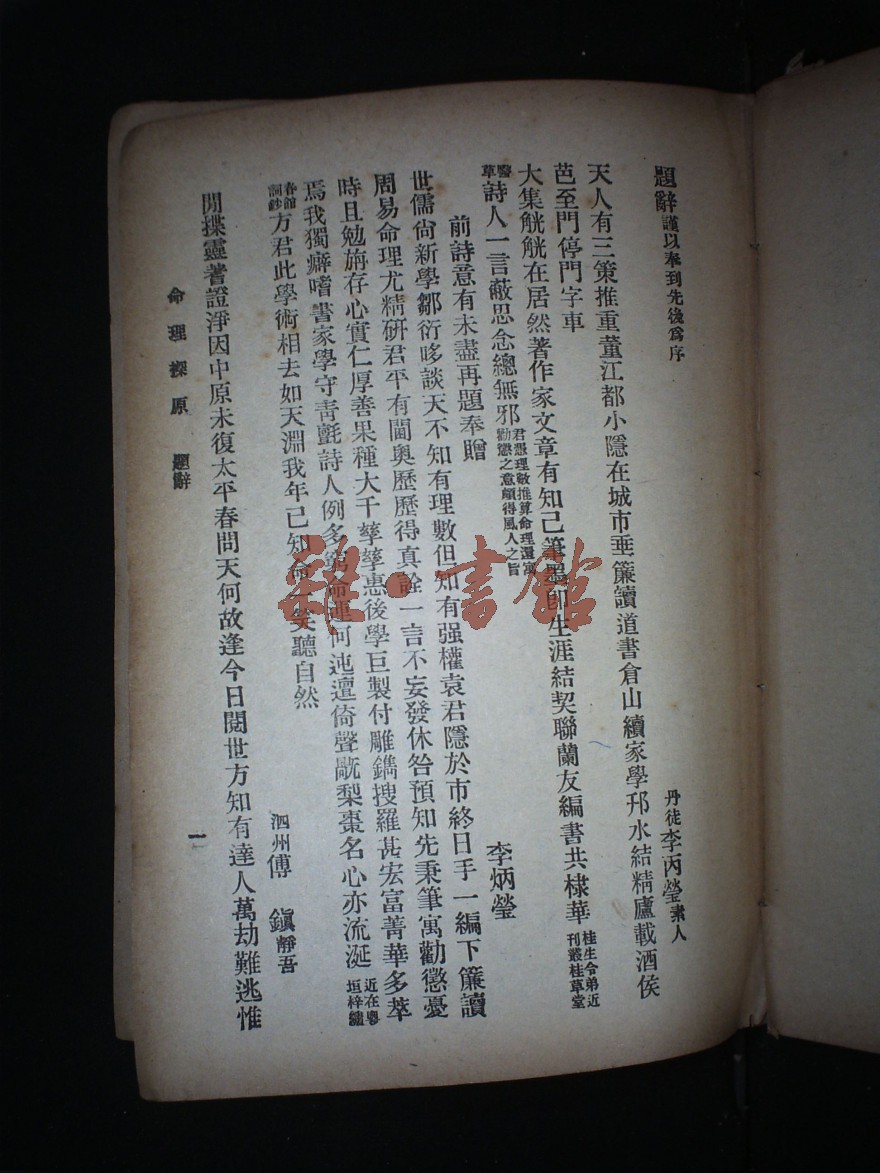 題辭 謹以奉到先後爲序
丹徒 李丙瑩 素人
天人有三策推重董江都小隱在城市垂簾讀道書倉山續家學邗水結精廬載酒侯
芭至門停問字車
大集觥觥在居然著作家文章有知己筆墨卽生涯結契聯蘭友編書共棣華 桂生令弟近刊叢桂草堂
醫草 詩人一言蔽思念總無邪 君憑理數推算命理還寓勸懲之意頗得風人之旨
前詩意有未盡再題奉贈
李炳瑩
世儒尙新學鄒衍哆談天不知有理數但知有强權袁君隱於市終日手一編下簾讀
周易命理尤精硏君平有閫奧歷歷得真詮一言不妄發休咎預知先秉筆寓勸懲憂
時且勉旃存心實仁厚善果種大千孳孳惠後學巨製付雕鐫搜羅甚宏富菁華多萃
焉我獨癖嗜書家學守靑氈詩人例多窮命運何迍邅倚聲甌梨棗名心亦流涎 近在粵垣梓
春館詞鈔 方君此學術相去如天淵我年已知命一笑聽自然
泗州 傅鎭 靜吾
閒揲靈蓍證淨因中原未復太平春問天何故逢今日閱世方知有達人萬劫難逃惟
命理探原 題辭
一
雜·書館